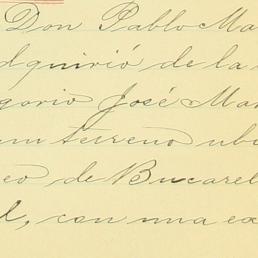 Don Pablo Ma
dquirió de la
gorio José Mar
un terreno ub
eo de Bucarel
l, con una ex